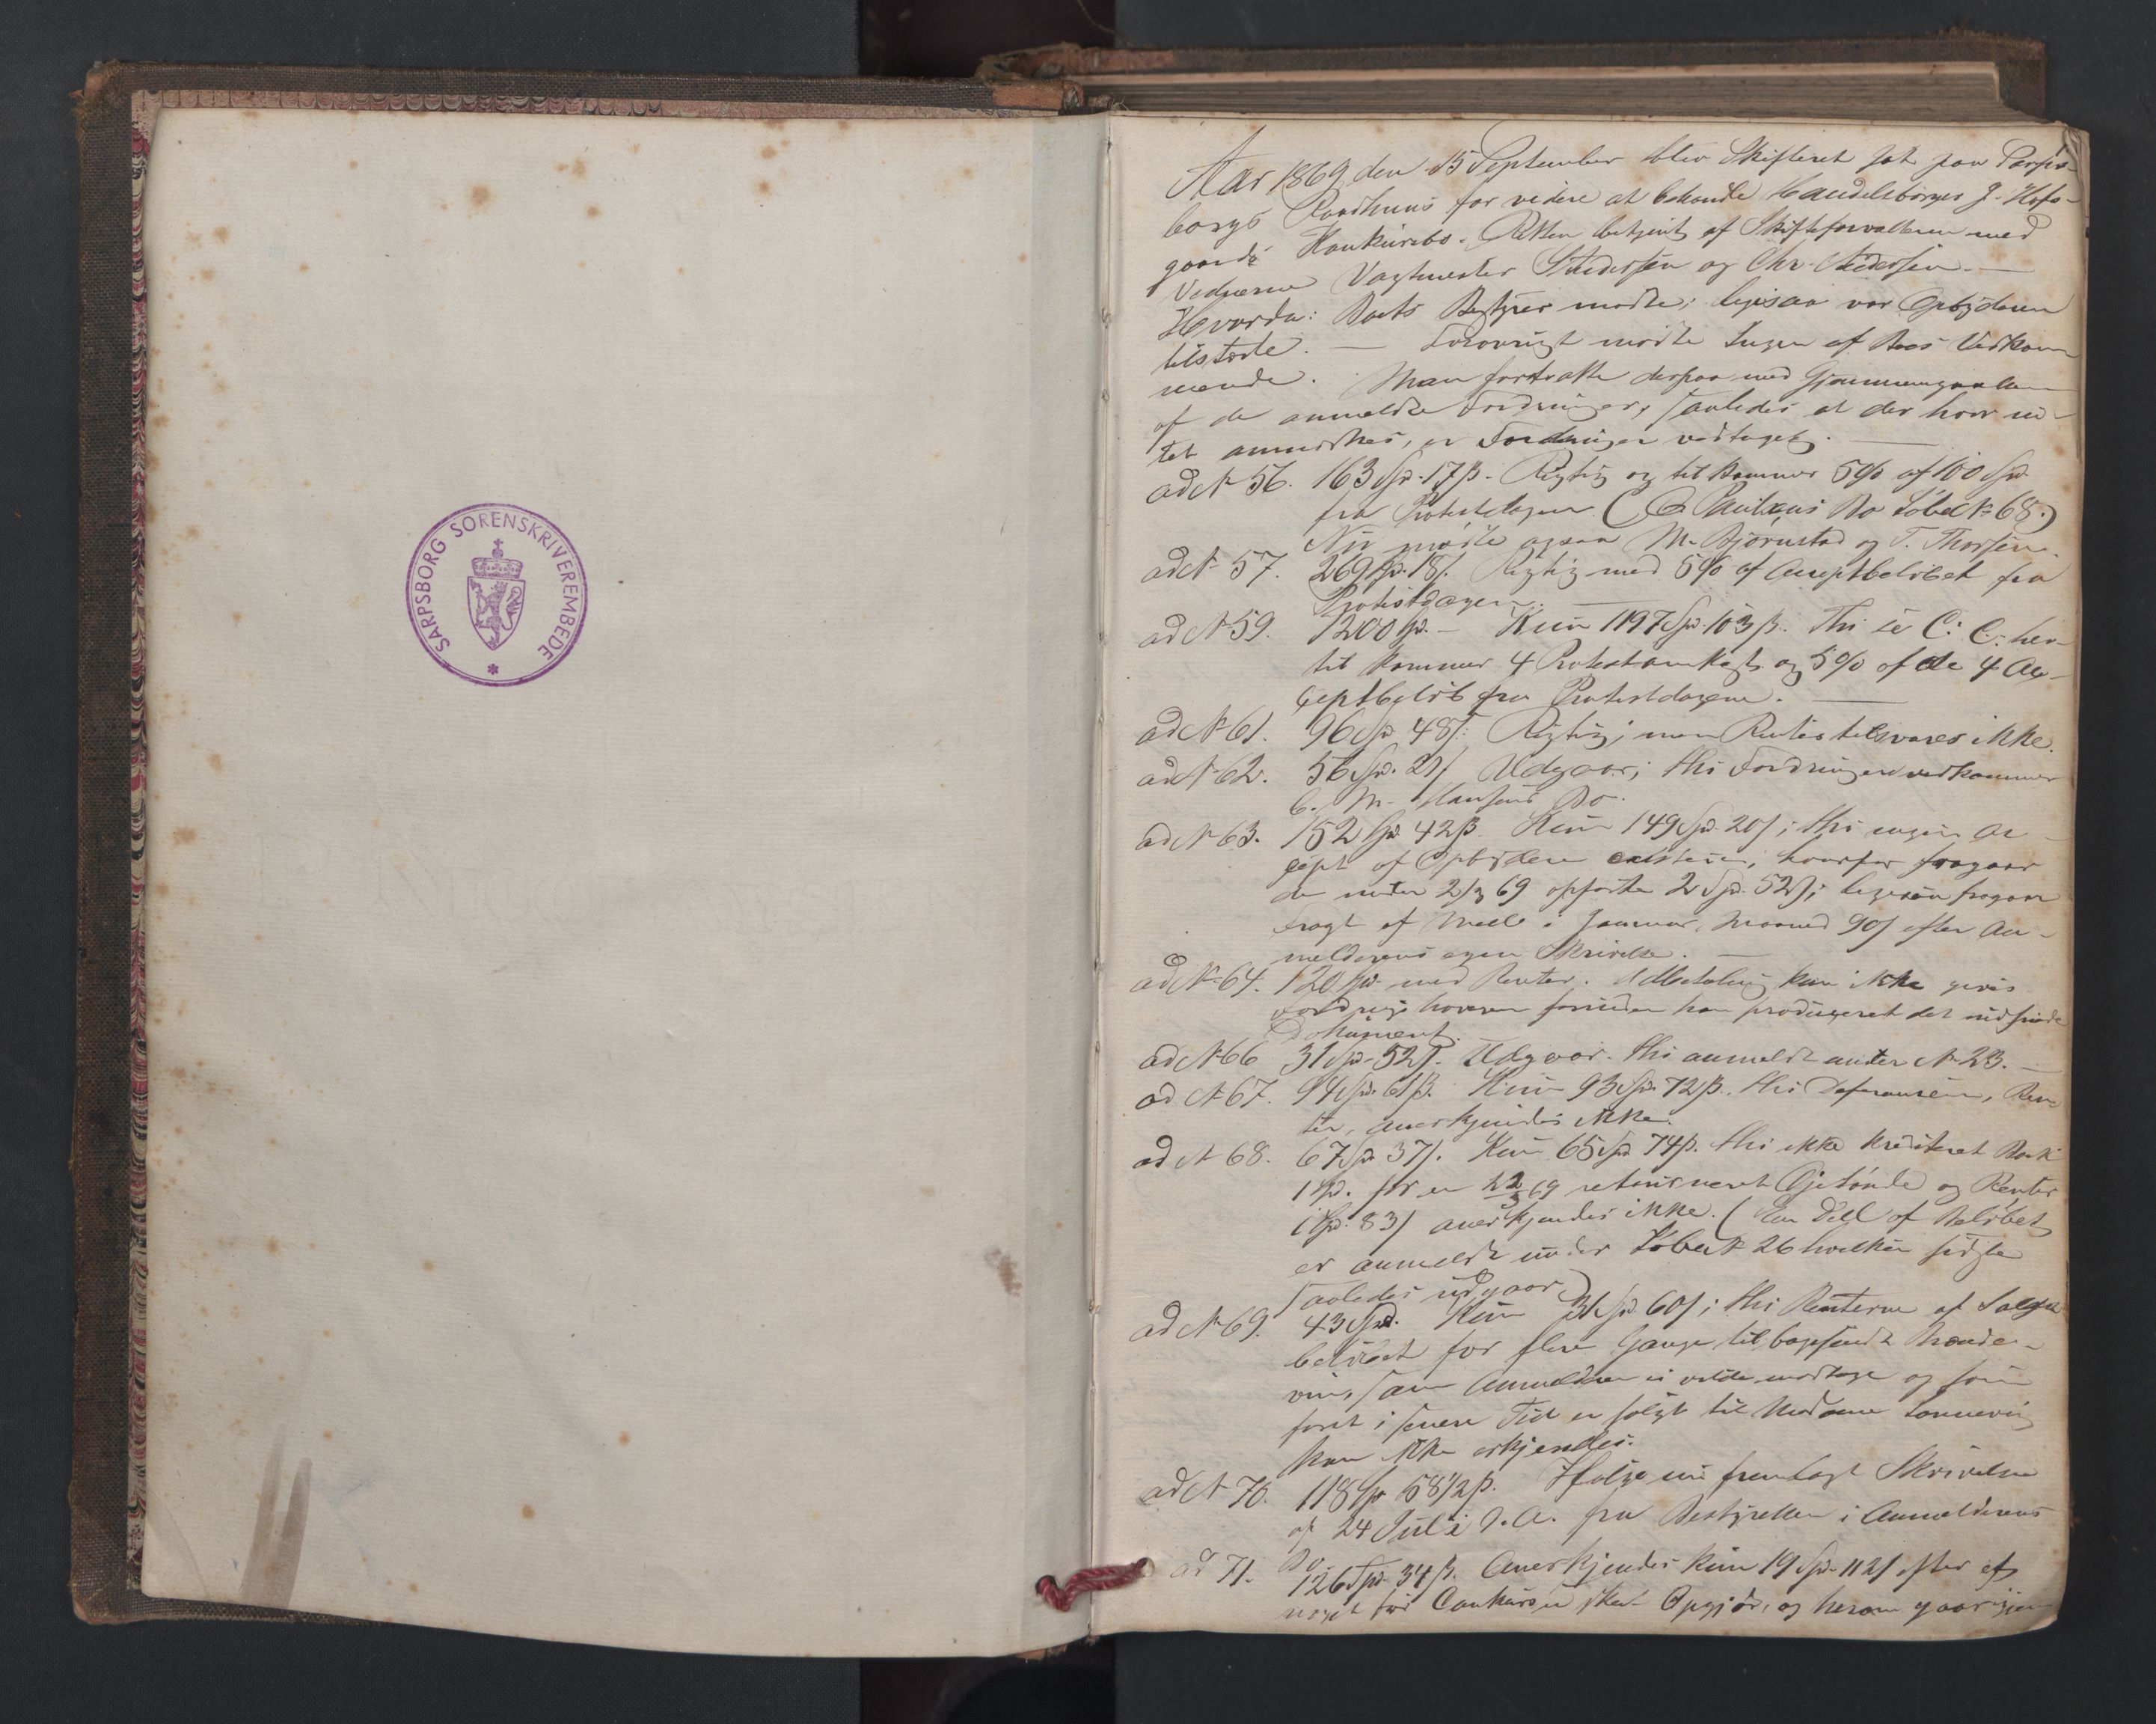 SARPSBORG SORENSKRIVEREMBEDE
Aar 1869 den 15 September blev Skifteret sat paa Sarps-
borgs Raadhuus for videre at behandle Handelsborger J. Hafs-
gaards Konkursbo. Retten betjent af Skifteforvalteren med
Vidnerne Vagtmester Pedersen og Chr. Pedersen. —
Hvorda: Boets Bestyrer mødte; ligesaa var Opbyderen
tilstede. — Forøvrigt mødte Ingen af Boets Vedkom
mende. Man fortsatte derpaa med Gjennemgaaelsen
af de anmeldte Fordringer, saaledes at der hvor in-
tet anmærkes, er Fordringen vedtaget. —
ad No 56. 163 Spd. 17 β. Rigtig og tilkommer 5% af 100 Spd.
fra Protestdagen (C Paulsens Bo Løbe No 68.)
Nu mødte ogsaa M. Bjørnstad og T. Thorsen.
ad No 57. 269 Spd. 18 β. Rigtig med 5% af Acceptbeløbet fra
Protestdagen. —
ad No 59. 1200 Spd. — Kun 1197 Spd. 103 β. Thi C. C. her-
til kommer 4 Protestomkostn. og 5% af de 4 Ac-
ceptbeløb fra Protestdagene. —
ad No 61. 96 Spd. 48 β. Rigtig; men Renter tilsvares ikke.
ad No 62. 56 Spd. 21 β Udgaar; thi Fordringen vedkommer
C. M. Hansens Bo.
ad No 63. 152 Spd. 42 β. Kun 149 Spd. 20 β; thi ingen Ac-
cept af Opbyderen existerer, hvorfor fragaar
de under 2/3 69 opførte 2 Spd. 52 β; ligesaa fragaar
Fragt af Meel i Januar Maaned 90 β efter An-
melderens egen Skrivelse. —
ad No 64. 120 Spd. med Renter. Udbetaling kan ikke gives
Fordringshaveren forinden han produceret det
Dokument.
ad No 66 31 Spd. 52 β. Udgaar. thi anmeldt under No 23. —
ad No 67. 94 Spd. 61 β. Kun 93 Spd. 72 β. thi Differansen, Ren-
ter, anerkjendes ikke.
ad No 68. 67 Spd. 37 β. Kun 65 Spd. 74 β. thi ikke krediteret Boet
1 Spd. for en 22/3 69 returneret Øltønde og Renter
1 Spd. 83 β anerkjendes ikke. (En Deel af Beløbet
er anmeldt under Løbe No 26 hvilken sidste
saaledes udgaar.)
ad No 69. 43 Spd. Kun 31 Spd. 60 β; thi Renterne af Salgs
beløbet for flere Gange tilbagesendt Brænde-
viin, som Anmelderen ei vilde modtage og som
først i senere Tid er solgt til Madame
kan ikke erkjendes.
ad No 70. 118 Spd 58 1/2 β. Ifølge nu fremlagt Skrivelse
af 24 Juli d. A. fra Bestyrelsen i Anmelderens
Bo.
ad 71. 126 Spd. 34 β. Anerkjendes kun 19 Spd. 112 β efter et
noget før Concursen skeet Opgjør, og herom